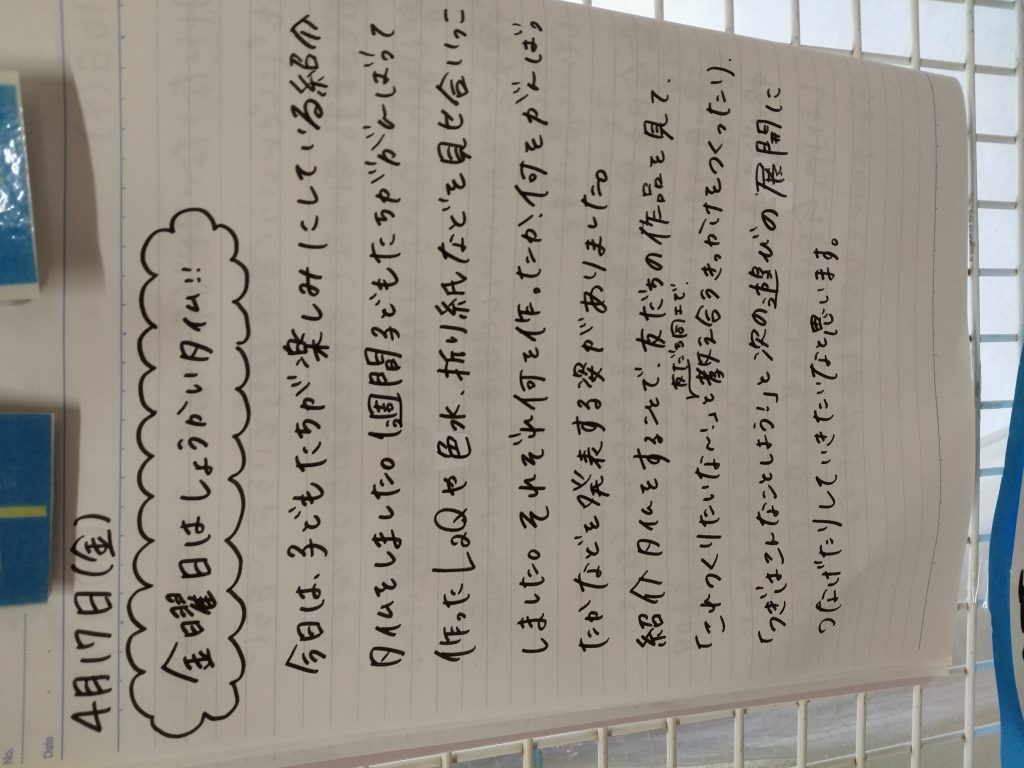 No.
Date
4月17日(金)
金曜日はしょうかいタイム!!
今日は、子どもたちが楽しみにしている紹介
タイムをしました。1週間子どもたちががんばって
作ったLaQや色水、折り紙などを見せ合いっこ
しました。それぞれ何を作ったか、何をがんばっ
たかなどを発表する姿がありました。
紹介タイムをすることで、友だちの作品を見て、
「これつくりたいな～」と教え合うきっかけをつくったり、
真ごと同士で、
「つぎはこんなことしよう!」と次の遊びの展開に
つなげたりしていきたいなと思います。